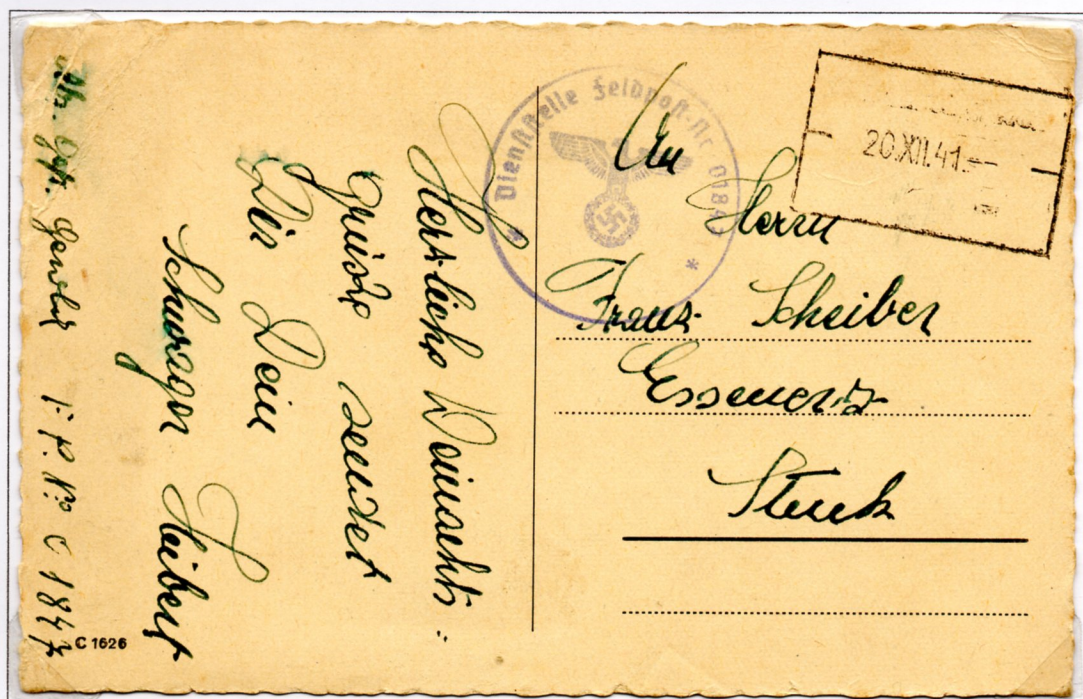 Dienststelle Feldpost-Nr. 0184
20.XII.41
An
Herrn
Franz Scheiber
Stuck
Herzliche Weinachts-
Grüsze sendet
Dir Dein
Schwager Heibert
F. P. No C 1847
C 1626